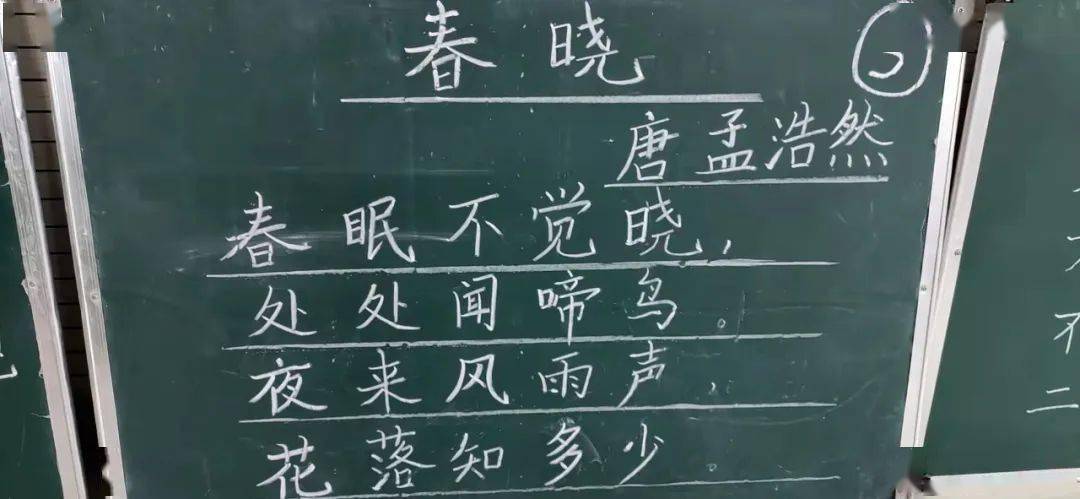 春晓
2
唐孟浩然
春眠不觉晓，
处处闻啼鸟。
夜来风雨声，
花落知多少。
二